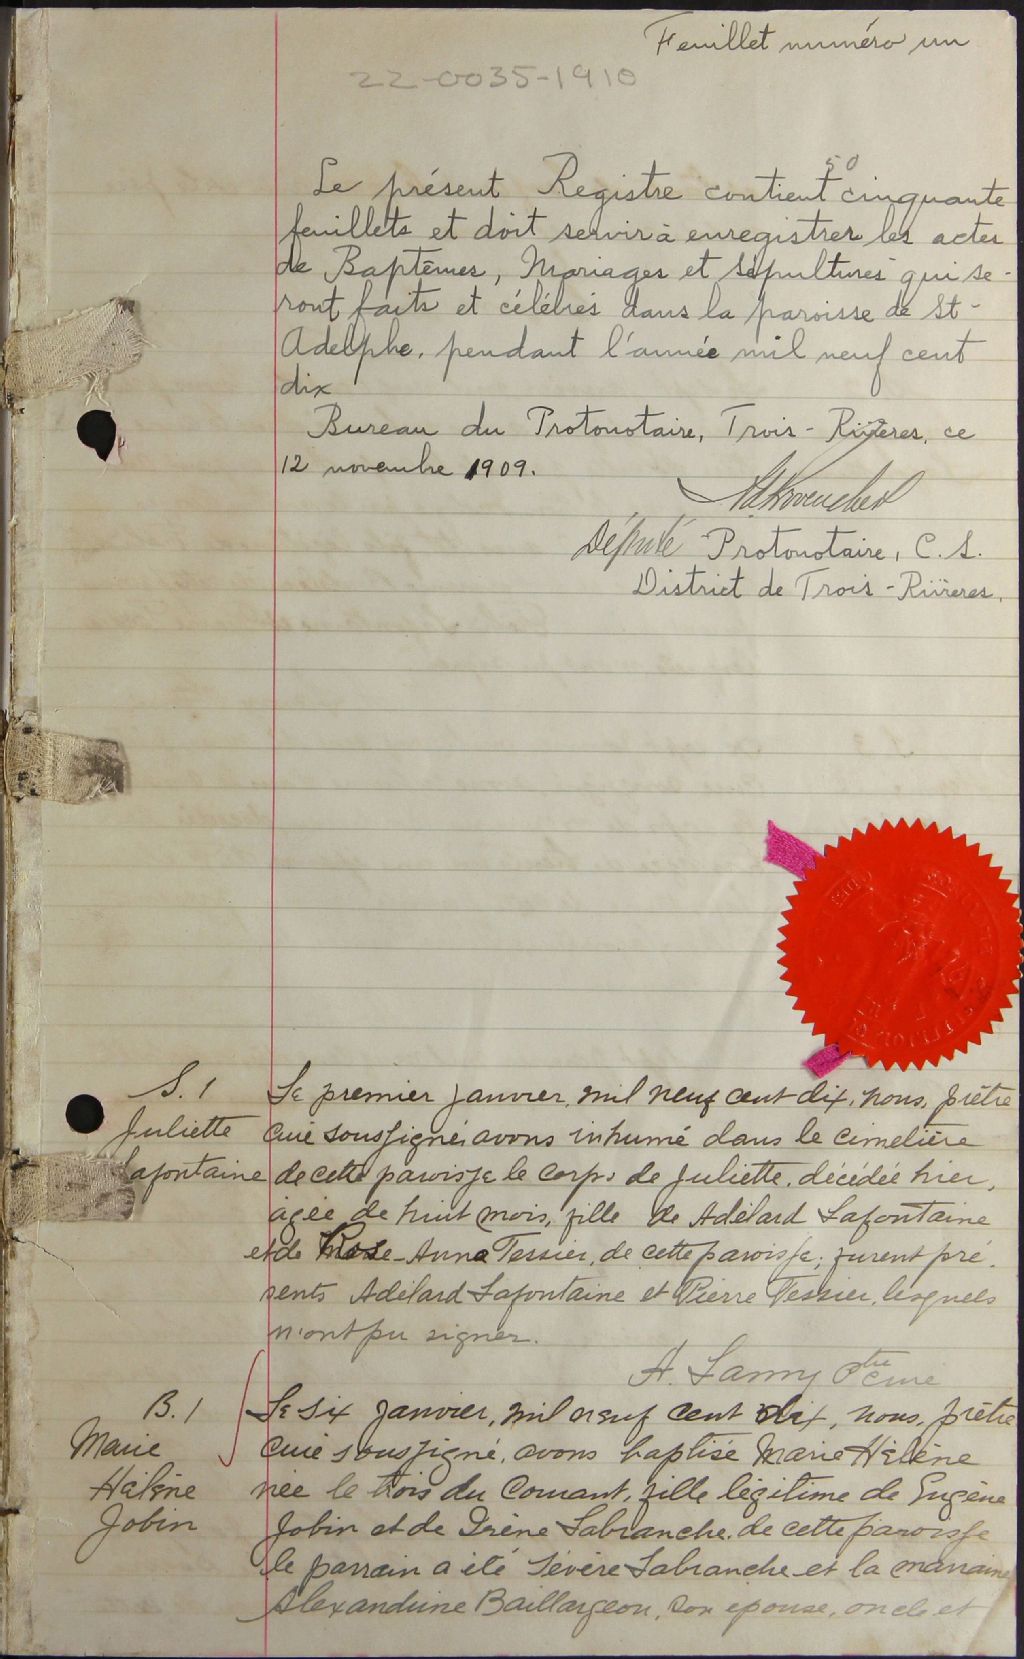 Feuillet numéro un
22-0035-1910
50
Le présent Registre contient cinquante
feuillets et doit servir à enregistrer les actes
de Baptêmes, Mariages et Sépultures qui se-
ront faits et célébrés dans la paroisse de St-
Adelphe, pendant l'année mil neuf cent
dix
Bureau du Protonotaire, Trois-Rivières, ce
12 novembre 1909.
Député Protonotaire, C. S.
District de Trois-Rivières.
S. 1
Juliette
Lafontaine
Le premier janvier, mil neuf cent dix, nous, prêtre
curé soussigné, avons inhumé dans le cimetière
de cette paroisse le corps de Juliette, décédée hier,
agée de huit mois, fille de Adélard Lafontaine
et de Rose-Anna Tessier, de cette paroisse; furent pré-
sents Adélard Lafontaine et Pierre Tessier, lesquels
n'ont pu signer.
A. Lamy Ptre curé
B. 1
Marie
Hélène
Jobin
Le six janvier, mil neuf cent dix, nous, prêtre
curé soussigné, avons baptisé Marie Hélène
née le trois du courant, fille légitime de Eugène
Jobin et de Irène Labranche, de cette paroisse
le parrain a été Sévère Labranche et la marraine
Alexandrine Baillargeon, son épouse, oncle et